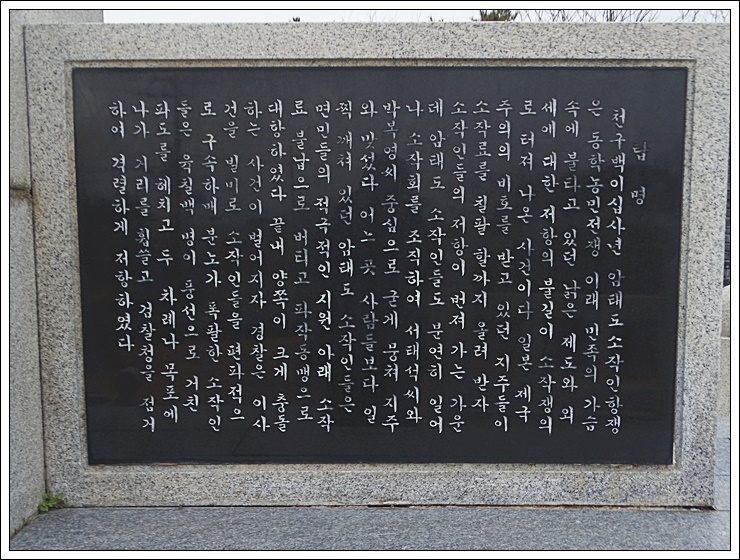 탑명
천구백이십사년 암태도소작인항쟁
은 동학농민전쟁 이래 민족의 가슴
속에 불타고 있던 낡은 제도와 외
세에 대한 저항의 불길이 소작쟁의
로 터져 나온 사건이다 일본 제국
주의의 비호를 받고 있던 지주들이
소작료를 칠팔 할까지 올려 받자
소작인들의 저항이 번져 가는 가운
데 암태도 소작인들도 분연히 일어
나 소작회를 조직하여 서태석씨와
박복영씨 중심으로 굳게 뭉쳐 지주
와 맞섰다 어느 곳 사람들보다 일
찍 깨쳐 있던 암태도 소작인들은
면민들의 적극적인 지원 아래 소작
료 불납으로 버티고 파작동맹으로
대항하였다 끝내 양쪽이 크게 충돌
하는 사건이 벌어지자 경찰은 이 사
건을 빌미로 소작인들을 편파적으
로 구속하매 분노가 폭발한 소작인
들은 육칠백 명이 풍선으로 거친
파도를 헤치고 두 차례나 목포에
나가 거리를 휩쓸고 검찰청을 점거
하여 격렬하게 저항하였다